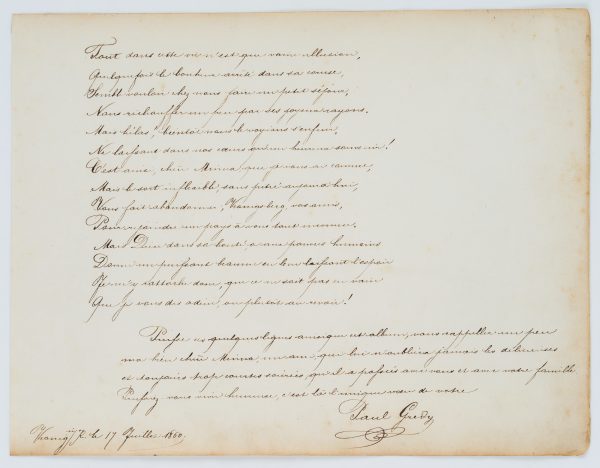 Tout dans cette vie n'est que vaine illusion,
Quelquefois le bonheur arrêté dans sa course,
Semble vouloir chez nous faire un petit séjour,
Nous réchauffer un peu par ses joyeux rayons.
Mais hélas! bientôt nous le voyons s'enfuir,
Ne laissant dans nos cœurs qu'un
C'est ainsi, chère Minna que je vous ai connue,
Mais le sort inflexible sans pitié aujourd'hui,
Vous fait abandonner, Kœnigsberg, vos amis,
Pour rejoindre un pays à vous tout inconnu.
Mais Dieu dans sa bonté à nous pauvres humains
Donne un puissant baume en leur laissant l'espoir
Je m'y rattache donc, que ce ne soit pas en vain
Que je vous dis adieu, ou plutôt au revoir!
Puisse ces quelques lignes ainsi que cet album, vous rappeller un peu
ma bien chère Minna, un ami, que lui n'oubliera jamais les délicieuses
et toujours trop courtes soirées qu'il a passées avec vous et avec votre famille.
vous une heureuse, c'est là l'unique vœu de votre
Paul Gredy
le 17 Juillet 1860.